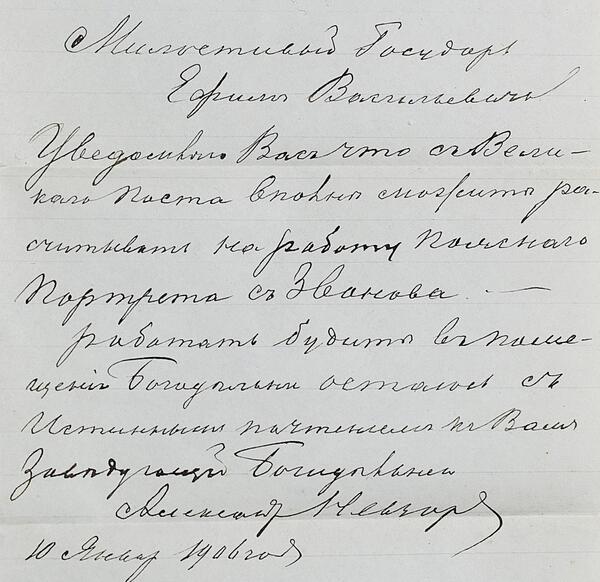 Милостивый Государь
Ефимъ Васильевичъ
Уведомляю Васъ что съ Вели-
каго поста вполнѣ сможите ра-
считывать на работу пояснаго
портрета съ Званова. —
работать будите въ поме-
щеніи Богодѣльни остаюсь съ
Истиннымъ почтеніемъ къ Вамъ
Заведующій Богодѣльней
10 Январ 1906 года